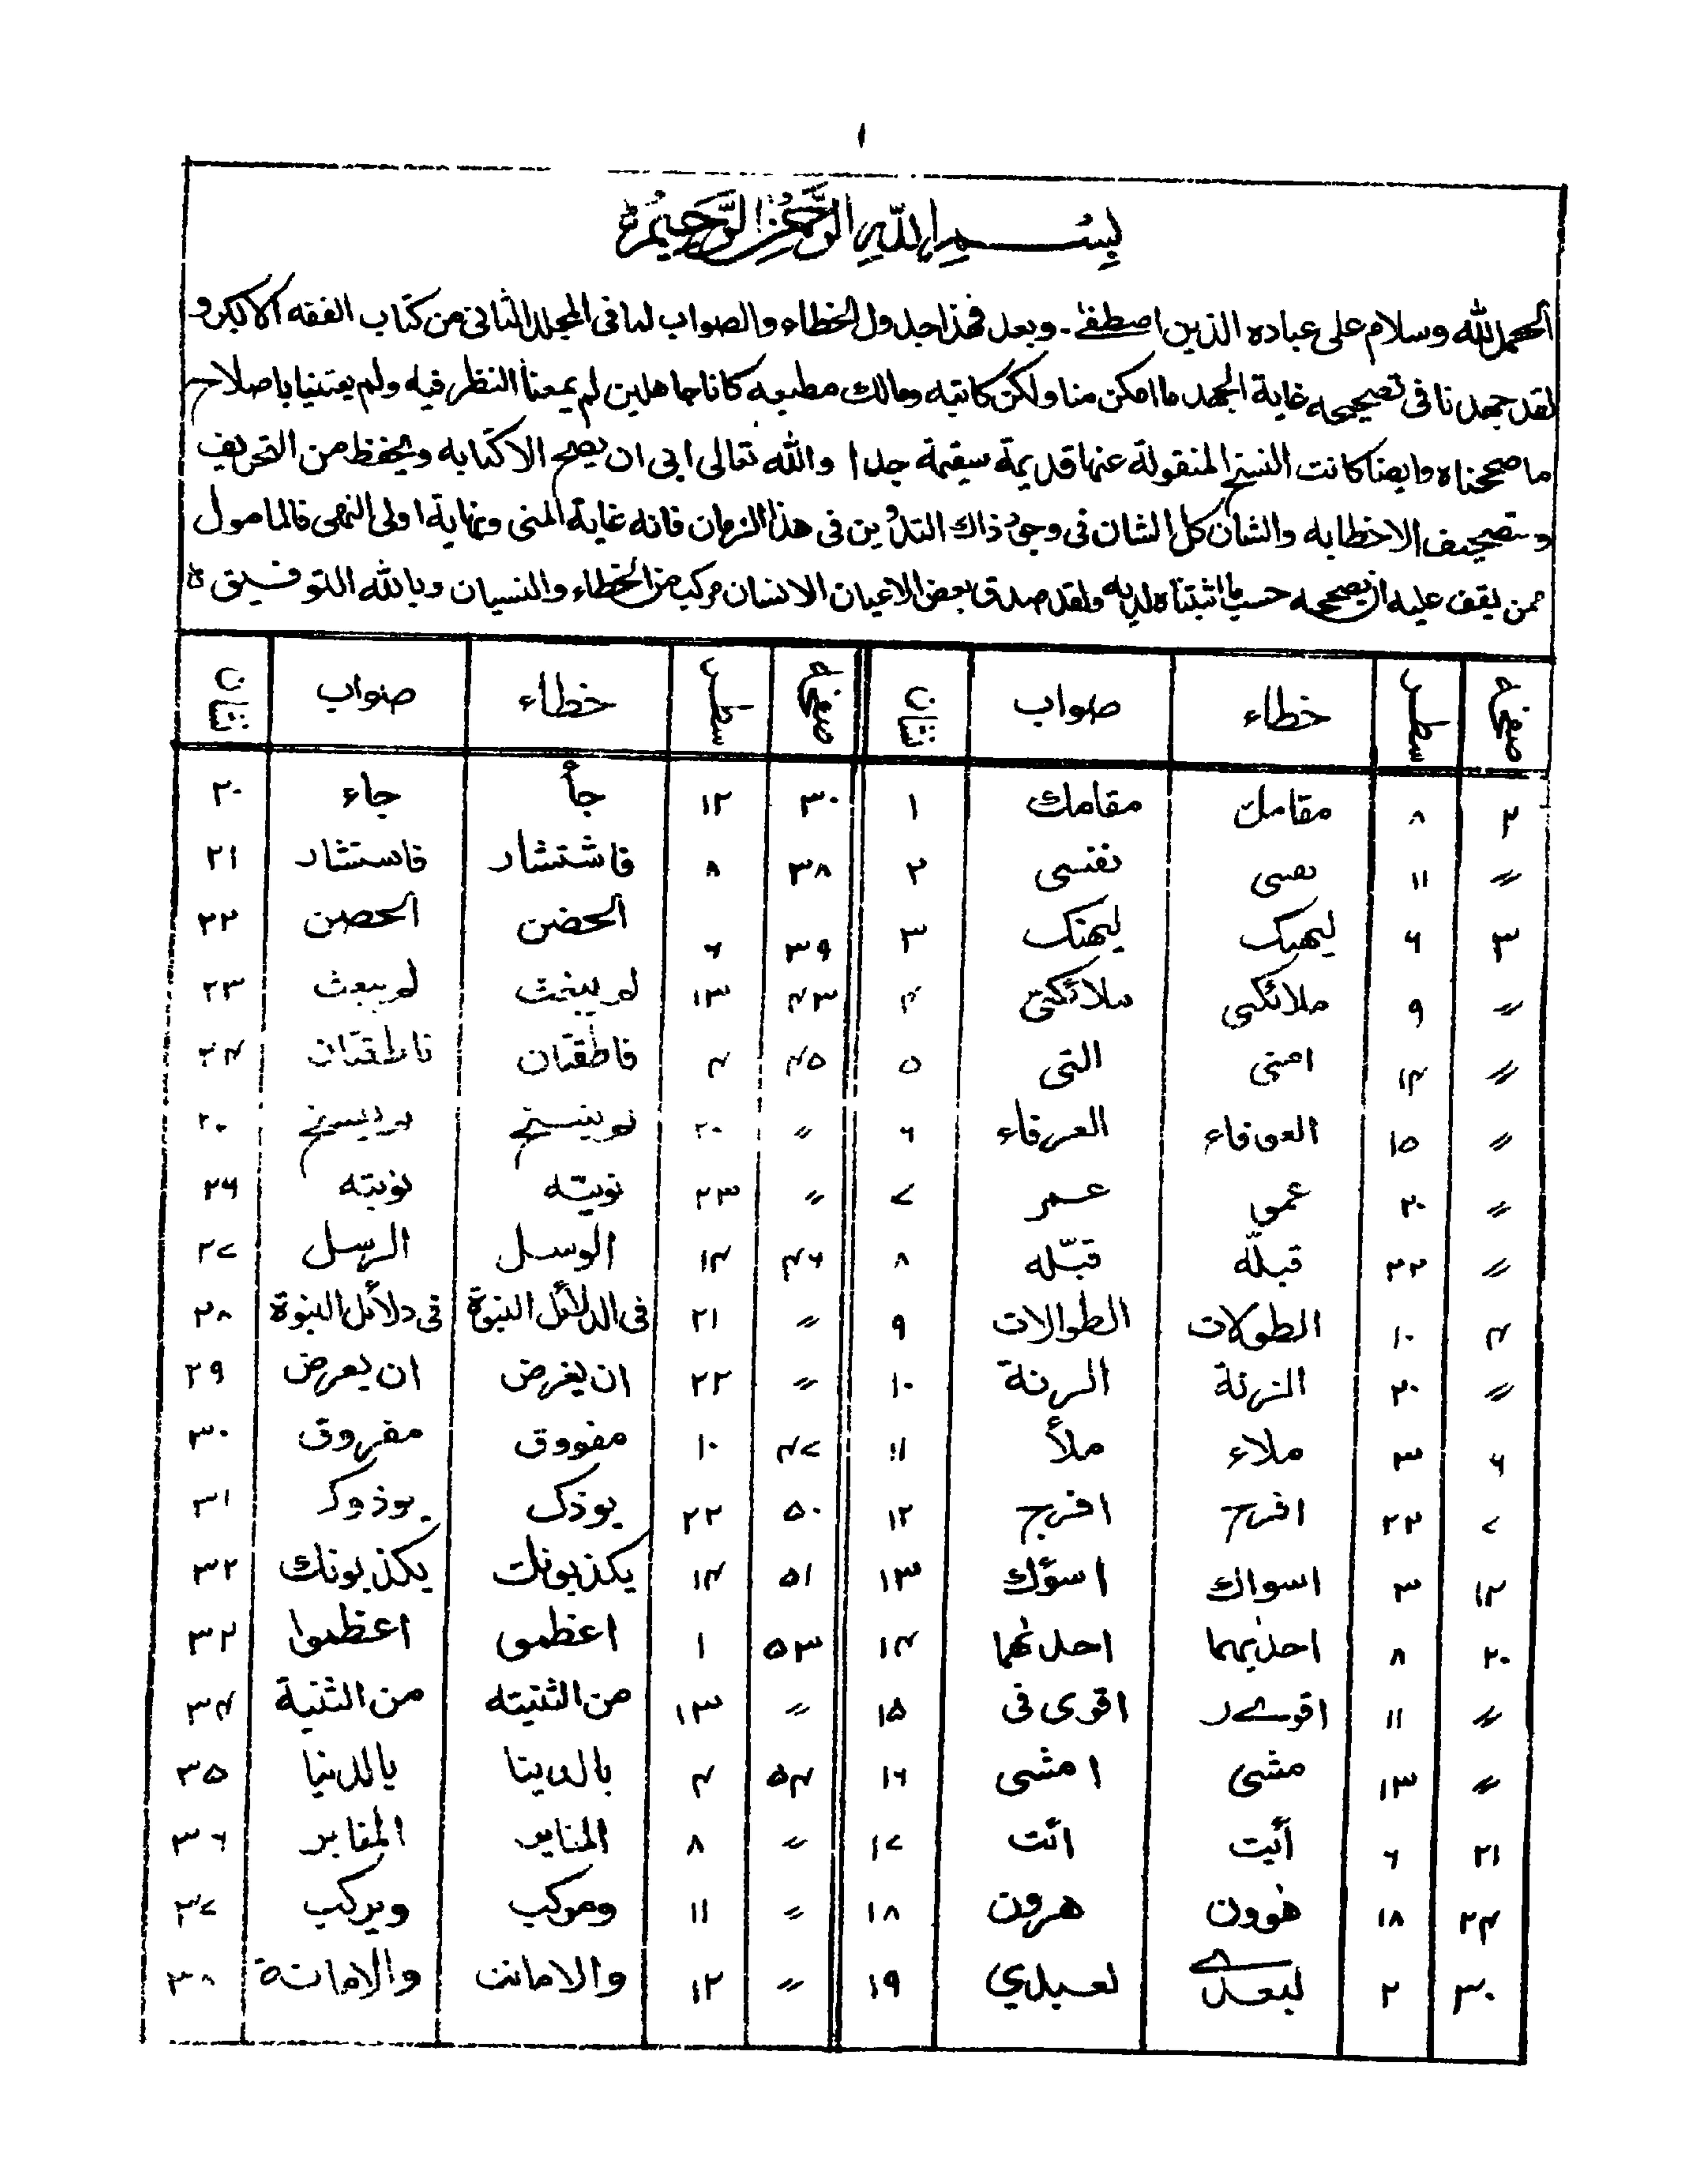 ١
بِسْمِ اللهِ الرَّحْمٰنِ الرَّحِيْمِ ه
الحمد لله وسلام على عباده الذين اصطفٰے۔ وبعد فهذا جدول الخطاء والصواب لما فى المجلد الثانى من كتاب الفقه الاكبر و
لقد جهدنا فى تصحيحه غاية الجهد ما امكن منا ولكن كاتبه ومالك مطبعه كانا جاهلين لم يمعنا النظر فيه ولم يعتنيا باصلاح
ما صححناه وايضا كانت النسخ المنقولة عنها قديمة سقيمة جدا والله تعالى ابى ان يصح الا كتابه ويحفظ من التحريف
وتصحيف الا خطابه والشان كل الشان فى وجود ذاك التدوين فى هذا الزمان فانه غاية المنى ونهاية اولى النهى فالمامول
ممن يقف عليه ان يصححه حسب ما اثبتناه لديه ولقد صدق بعض الاعيان الانسان مركب من الخطاء والنسيان وبالله التوفيق ه
صفحہ سطر خطاء صواب نشان صفحہ سطر خطاء صواب نشان
٢ ٨ مقامل مقامك ١ ٣٠ ١٢ جأ جاء ٢٠
〃 ١١ نصى نفسى ٢ ٣٨ ٨ فاشتشار فاستشار ٢١
٣ ٦ ليهبك ليهنك ٣ ٣٩ ٦ الحضن الحصن ٢٢
〃 ٩ ملائكى ملائكتى ٤ ٤٣ ١٣ لم يبغث لم يبعث ٢٣
〃 ١٤ امنى التى ٥ ٤٥ ٤ فاطقتان ناطقتان ٢٤
〃 ١٥ العوفاء العرفاء ٦ 〃 ٢٠
〃 ٢٠ عمو عمر ٧ 〃 ٢٣ نوبيّه نوبته ٢٦
〃 ٢٢ قبلّه قبّله ٨ ٤٦ ١٤ الوسل الرسل ٢٧
٤ ١٠ الطولات الطوالات ٩ 〃 ٢١ فى الدلائل النبوة فى دلائل النبوة ٢٨
〃 ٢٠ الزنة الرنة ١٠ 〃 ٢٢ ان يغرض ان يعرض ٢٩
٦ ٣ ملاء ملأ ١١ ٤٧ ١٠ مفووق مفروق ٣٠
٧ ٢٢ افرح افرج ١٢ ٥٠ ٢٢ بوذك بوذوكر ٣١
١٢ ٣ اسواك اسؤك ١٣ ٥١ ١٤ يكذبونك يكذبونك ٣٢
٢٠ ٨ احدٰيهما احدٰهما ١٤ ٥٣ ١ اعظمو اعظموا ٣٢
〃 ١١ اقوےر اقوى فى ١٥ 〃 ١٣ من الثنيته من الثنية ٣٤
〃 ١٣ مشى امشى ١٦ ٥٤ ٤ بالدينا بالدنيا ٣٥
٢١ ٦ أيت ائت ١٧ 〃 ٨ المنابر المقابر ٣٦
٢٤ ١٨ هوون هرون ١٨ 〃 ١١ ومركب ويركب ٣٧
٣٠ ٢ لبعدے لعبدي ١٩ 〃 ١٢ والامانت والامانة ٣٨